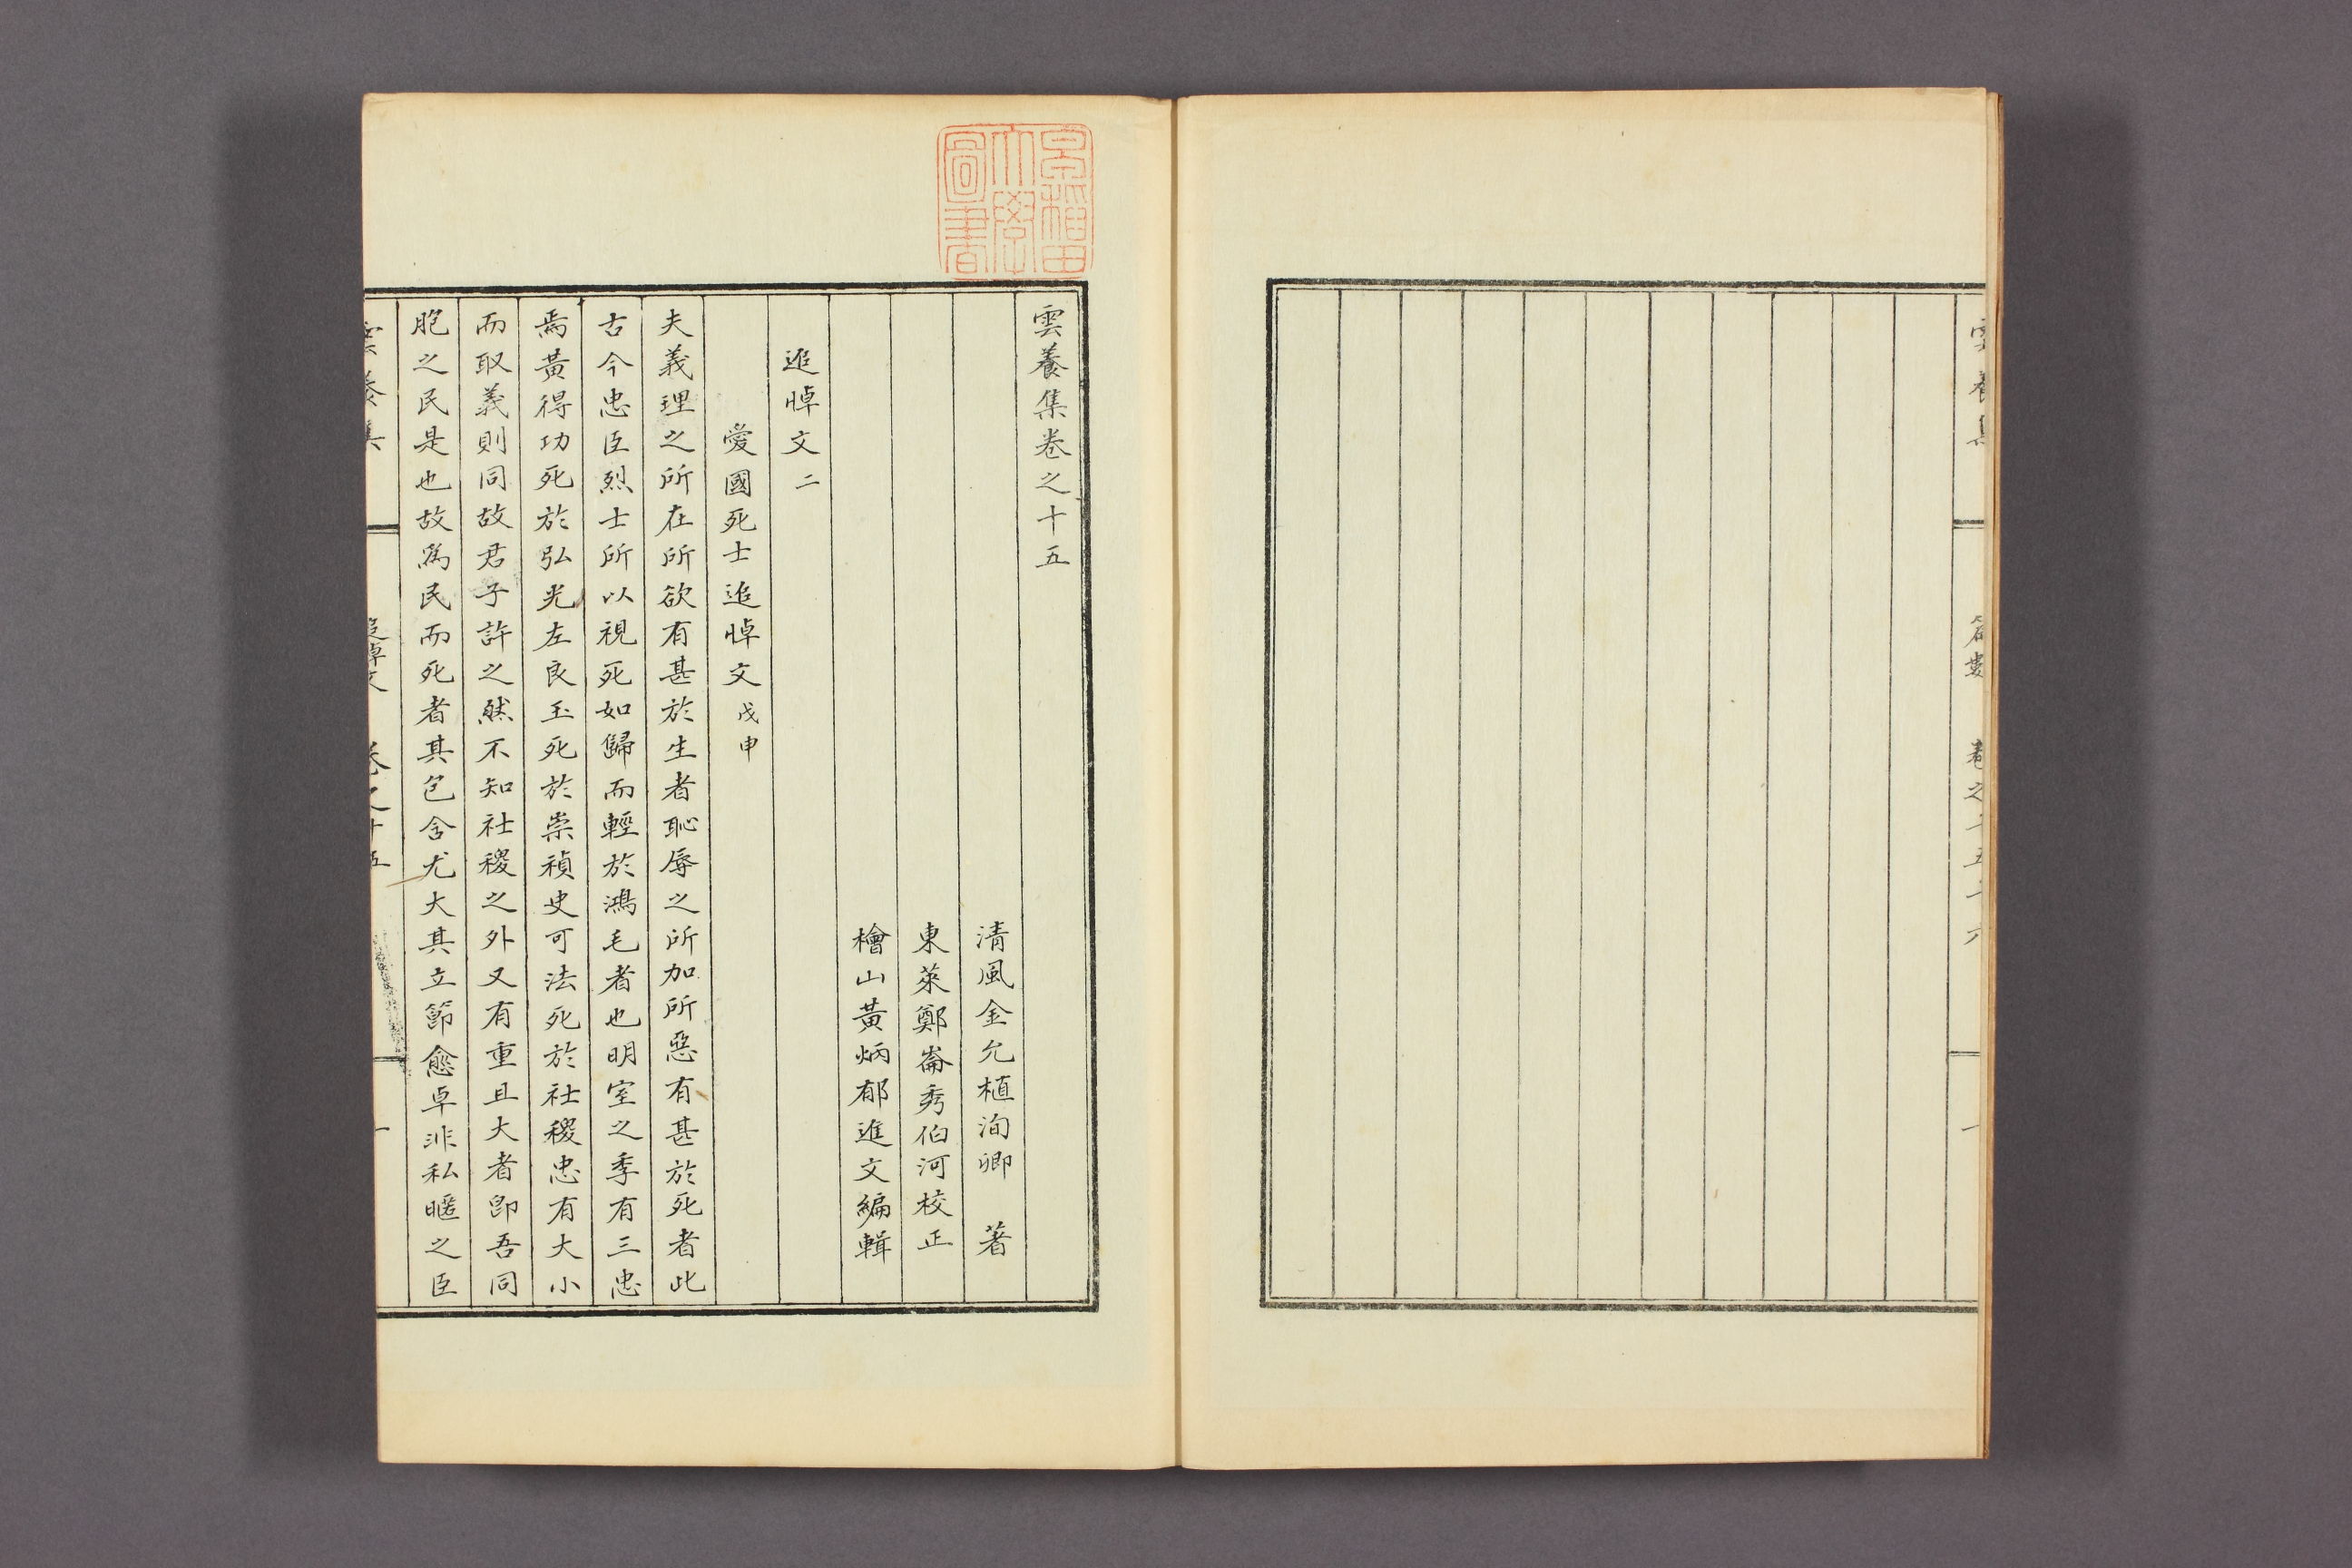 早稲田
大學
圖書
雲養集
卷之十五十六
一
雲養集卷之十五
清風金允植洵卿　著
東萊鄭崙秀伯河校正
檜山黃炳郁進文編輯
追悼文二
愛國死士追悼文戊申
夫義理之所在所欲有甚於生者恥辱之所加所惡有甚於死者此
古今忠臣烈士所以視死如歸而輕於鴻毛者也明室之季有三忠
焉黃得功死於弘光左良玉死於崇禎史可法死於社稷忠有大小
而取義則同故君子許之然不知社稷之外又有重且大者卽吾同
胞之民是也故爲民而死者其包含尤大其立節愈卓非私暱之臣
雲養集
追悼文
卷之十五
一